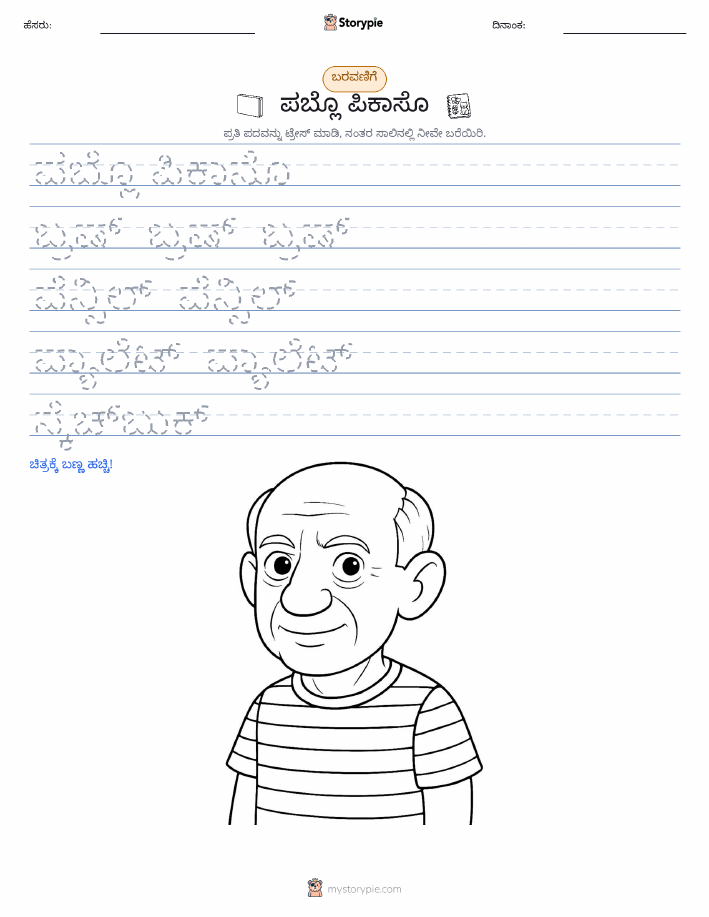 ಹೆಸರು: Storypie ದಿನಾಂಕ:
ಬರವಣಿಗೆ
ಪಬ್ಲೊ ಪಿಕಾಸೊ
ಪ್ರತಿ ಪದವನ್ನು ಟ್ರೇಸ್ ಮಾಡಿ, ನಂತರ ಸಾಲಿನಲ್ಲಿ ನೀವೇ ಬರೆಯಿರಿ.
ಪಬ್ಲೊ ಪಿಕಾಸೊ
ಬ್ರಷ್ ಬ್ರಷ್ ಬ್ರಷ್
ಪೆನ್ಸಿಲ್ ಪೆನ್ಸಿಲ್
ಪ್ಯಾಲೇಟ್ ಪ್ಯಾಲೇಟ್
ಸ್ಕೆಚ್‌ಬುಕ್
ಚಿತ್ರಕ್ಕೆ ಬಣ್ಣ ಹಚ್ಚಿ!
mystorypie.com